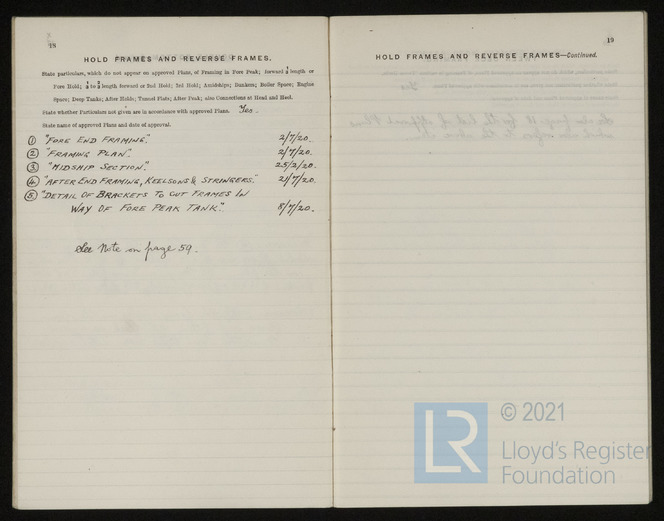 18
HOLD FRAMES AND REVERSE FRAMES.
State particulars, which do not appear on approved Plans, of Framing in Fore Peak; forward ¼ length or
Fore Hold; ¼ to ⅗ length forward or 2nd Hold; 3rd Hold; Amidships; Bunkers; Boiler Space; Engine
Space; Deep Tanks; After Holds; Tunnel Flats; After Peak; also Connections at Head and Heel.
State whether Particulars not given are in accordance with approved Plans. Yes.
State name of approved Plans and date of approval.
① "FORE END FRAMING." 2/7/20.
② "FRAMING PLAN." 2/7/20.
③ "MIDSHIP SECTION." 25/2/20.
④ "AFTER END FRAMING, KEELSONS & STRINGERS." 21/7/20.
⑤ "DETAIL OF BRACKETS TO CUT FRAMES IN
WAY OF FORE PEAK TANK." 8/7/20.
See Note on page 59.
19
HOLD FRAMES AND REVERSE FRAMES—Continued.
LR
© 2021
Lloyd's Register
Foundation